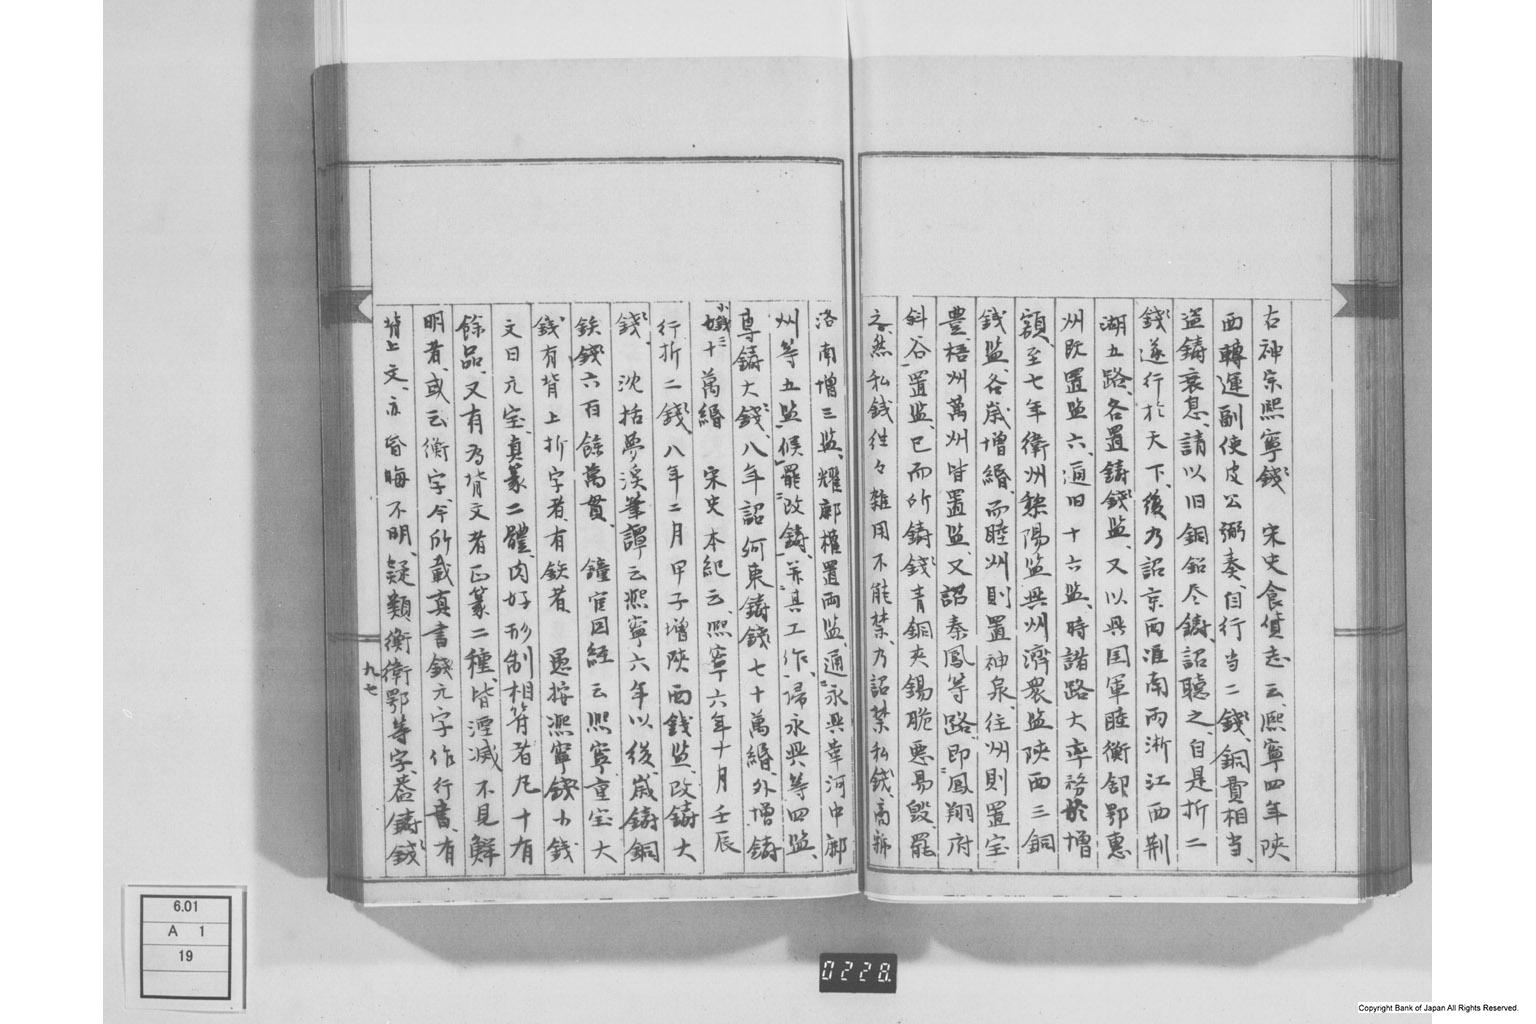 右神宗熙寧錢　宋史食貨志云、熙寧四年陝
西轉運副使皮公弼奏、自行当二錢、銅費相当、
盜鑄衰息、請以旧銅鉛尽鋳、詔聴之、自是折二
錢遂行於天下、後乃詔京西淮南両浙江西荊
湖五路、各置鋳錢監、又以興国軍睦衡舒鄂惠
州既置監六、通旧十六監、時諸路大率務於增
額、至七年衛州黎陽監興州濟衆監陝西三銅
錢監、各歳增緡、而睦州則置神泉、徃州則置宝
豊、梧州萬州皆置監、又詔秦鳳等路、即鳳翔府
斜谷置監、已而所鋳錢青銅夾錫脆悪易毀、罷
之、然私錢徃々雑用不能禁、乃詔禁私錢、商虢
洛南增三監、耀鄜權置両監、通永興華河中鄜
州等五監、候罷改鋳、并其工作、帰永興等四監、
專鋳大錢、八年詔河東鋳錢七十萬緡、外增鋳
小錢三十萬緡　宋史本紀云、熙寧六年十月壬辰
行折二錢、八年二月甲子增陝西錢監、改鋳大
錢、　沈括夢渓筆譚云熙寧六年以後、歳鋳銅
鉄錢六百餘萬貫　鐘官図経云熙寧重宝大
錢有背上折字者、有鉄者　愚按熙寧錢小錢
文曰元宝、真篆二體、肉好形制相符者凡十有
餘品、又有為背文者正篆二種、皆湮滅不見鮮
明者、或云衡字、今所載真書錢元字作行書、有
背上文、亦昏晦不明、疑類衡衛鄂等字、葢鋳錢
九七
6.01
A 1
19
0228.
Copyright Bank of Japan All Rights Reserved.